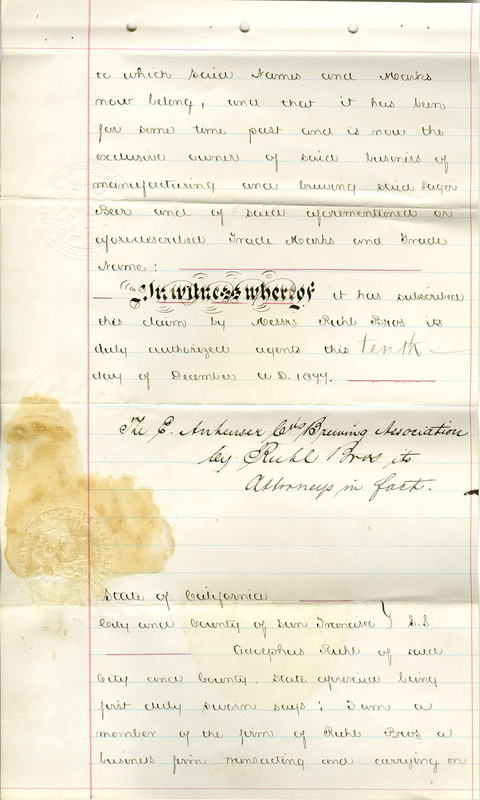 to which said Names and Marks
now belong, and that it has been
for some time past and is now the
exclusive owner of said business of
manufacturing and brewing said Lager
Beer and of said aforementioned or
aforedescribed Trade Marks and Trade
Name:
In witness whereof it has subscribed
this claim by Messrs Ruhl Bros its
duly authorized agents this tenth
day of December A.D. 1877.
The E. Anheuser Co's Brewing Association
by Ruhl Bros its
Attorneys in fact.
State of California
City and County of San Francisco } S.S
Adolphus Ruhl of said
City and County. State aforesaid being
first duly sworn says: I am a
member of the firm of Ruhl Bros a
business firm transacting and carrying on